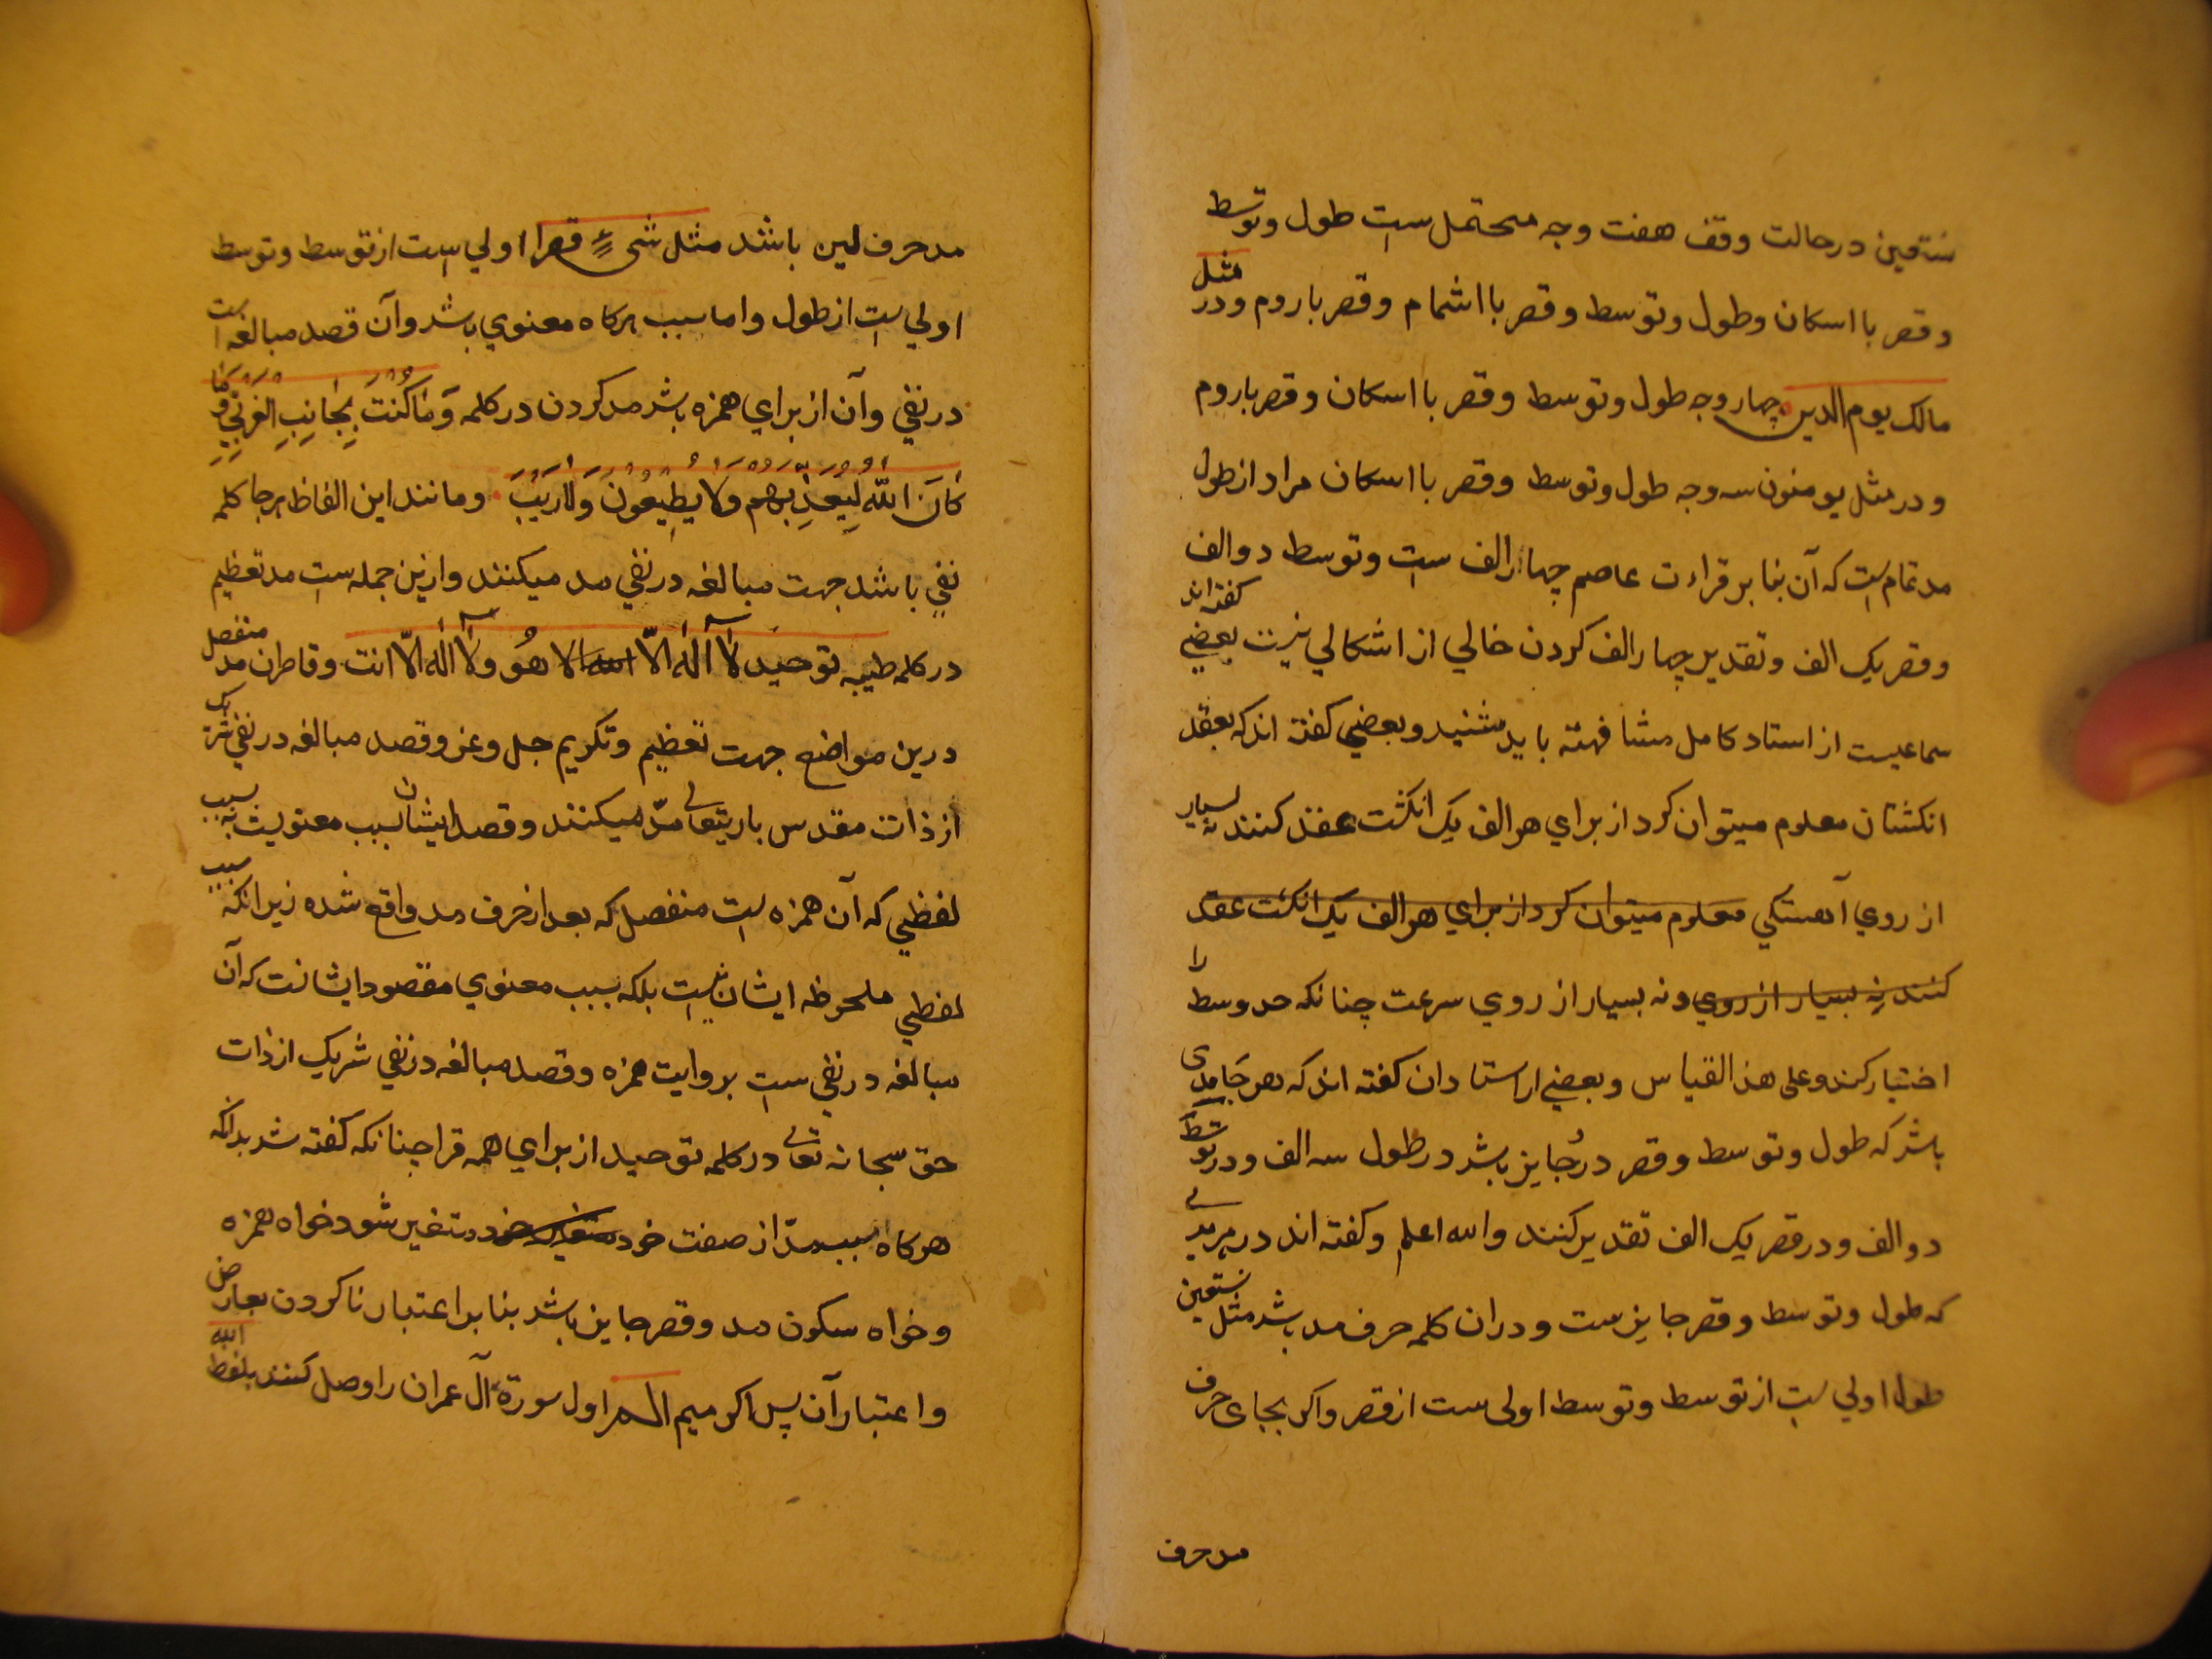 نستعین در حالت وقف هفت وجه محتمل ست طول وتوسط
وقصر با اسکان وطول وتوسط وقصر با اشمام وقصر باروم ودر مثل
مالک یوم الدین چهار وجه طول وتوسط وقصر با اسکان وقصر باروم
ودر مثل یومنون سه وجه طول وتوسط وقصر با اسکان مراد از طول
مد تمام ست که آن بنا بر قراءت عاصم چهار الف ست وتوسط دو الف
وقصر یک الف وتقدیر چهار الف کردن خالي از اشکالي نیست بعضي کفته اند
سماعیست از استاد کامل مشافهته باید شنید وبعضي کفته اند که بعقد
انکشتان معلوم میتوان کرد از براي هر الف یک انکشت عقد کنند نه بسیار
از روي آهستکي معلوم میتوان کرد از براي هر الف یک انکشت عقد
کنند نه بسیار از روي ونه بسیار از روي سرعت چنانکه حد وسط را
اختیار کنند وعلی هذا القیاس وبعضے از استادان کفته اند که هر جا مدی
باشد که طول وتوسط وقصر درُ جایز باشد در طول سه الف ودر توسط
دو الف ودر قصر یک الف تقدیر کنند والله اعلم وکفته اند در هر مدے
که طول وتوسط وقصر جایز ست ودران کلمه حرف مد باشد مثل نستعین
طول اولي ست از توسط وتوسط اولی ست از قصر واکر بجای حرف
مد حرف
مد حرف لین باشد مثل شیء قصر اولي ست از توسط وتوسط
اولي ست از طول واما سبب هرکاه معنوي باشد وآن قصد مبالغه است
در نفي وآن از براي همزه باشد مد کردن در کلمه وَمَا کُنْتَ بِجَانِبِ الْغَرْبِيِّ وَمَا
کَانَ اللّٰهُ لِیُعَذِّبَهُم وَلَا یُطِیْعُونَ وَلَا رَیْبَ ومانند این الفاظ هر جا کلمه
نفي باشد جهت مبالغه در نفي مد میکنند وازین جمله ست مد تعظیم
در کلمه طیبه توحید لَآ اِلٰهَ اِلَّا الله الا هُو ولَآ اِلٰه اِلّا انت وقاصران مد منفصل
درین مواضع جهت تعظیم وتکریم جل وعز وقصد مبالغه در نفي شرک
از ذات مقدس باریتعالے مدّ میکنند وقصد ایشان سبب معنویست نه سبب
لفظي که آن همزه ست منفصل که بعد از حرف مد واقع شده زیرا نکه سبب
لفظي ملحوظه ایشان نیست بلکه سبب معنوي مقصود ایشانست که آن
مبالغه در نفي ست بروایت همزه وقصد مبالغه در نفي شریک از ذات
حق سبحانه تعالے در کلمه توحید از براي همه قرا چنانکه کفته شد بدانکه
هرکاه سبب مدّ از صفت خود متغیر خود متغیر شود خواه همزه
وخواه سکون مد وقصر جایز باشد بنا بر اعتبار ناکردن بعارض
واعتبار آن پس اکر میم الم اول سورة آل عمران را وصل کنند بلفظ الله